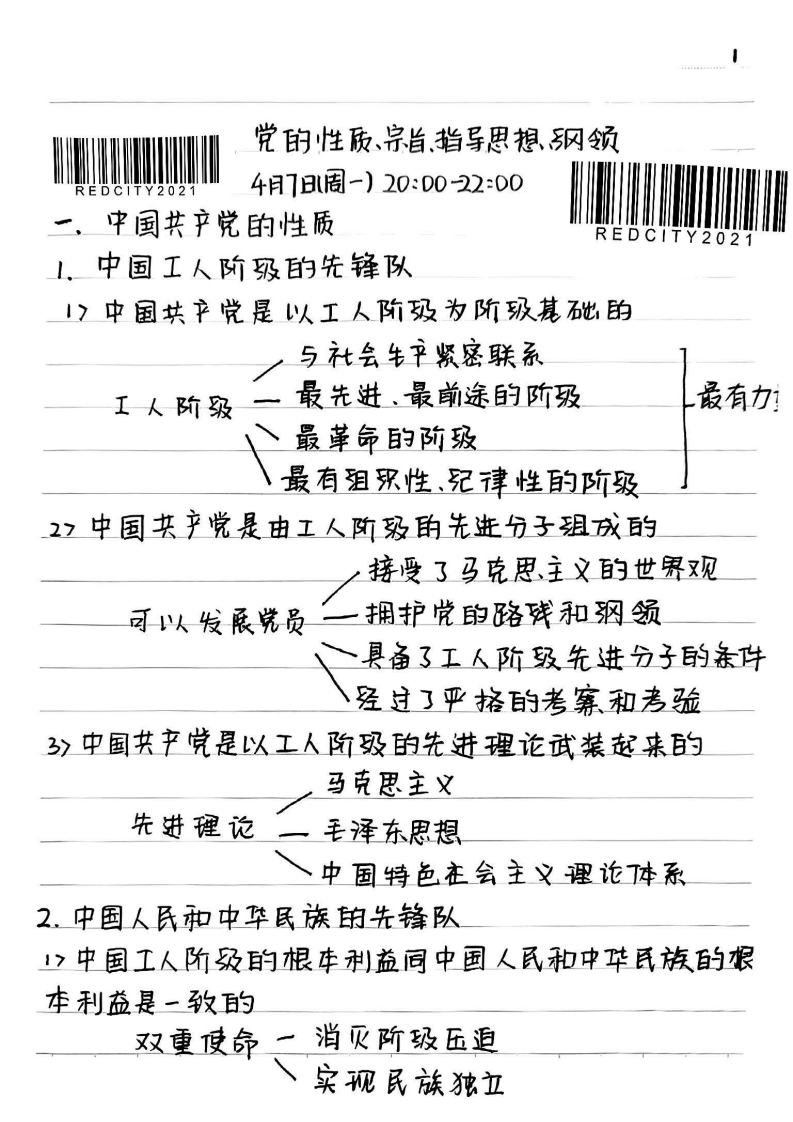 1
党的性质、宗旨、指导思想、纲领
REDCITY2021
4月7日(周一) 20:00-22:00
REDCITY2021
一. 中国共产党的性质
1. 中国工人阶级的先锋队
1> 中国共产党是以工人阶级为阶级基础的
与社会生产紧密联系
工人阶级 — 最先进、最前途的阶级 最有力
最革命的阶级
最有组织性、纪律性的阶级
2> 中国共产党是由工人阶级的先进分子组成的
接受了马克思主义的世界观
可以发展党员 — 拥护党的路线和纲领
具备了工人阶级先进分子的条件
经过了严格的考察和考验
3> 中国共产党是以工人阶级的先进理论武装起来的
马克思主义
先进理论 — 毛泽东思想
中国特色社会主义理论体系
2. 中国人民和中华民族的先锋队
1> 中国工人阶级的根本利益同中国人民和中华民族的根
本利益是一致的
双重使命 — 消灭阶级压迫
实现民族独立